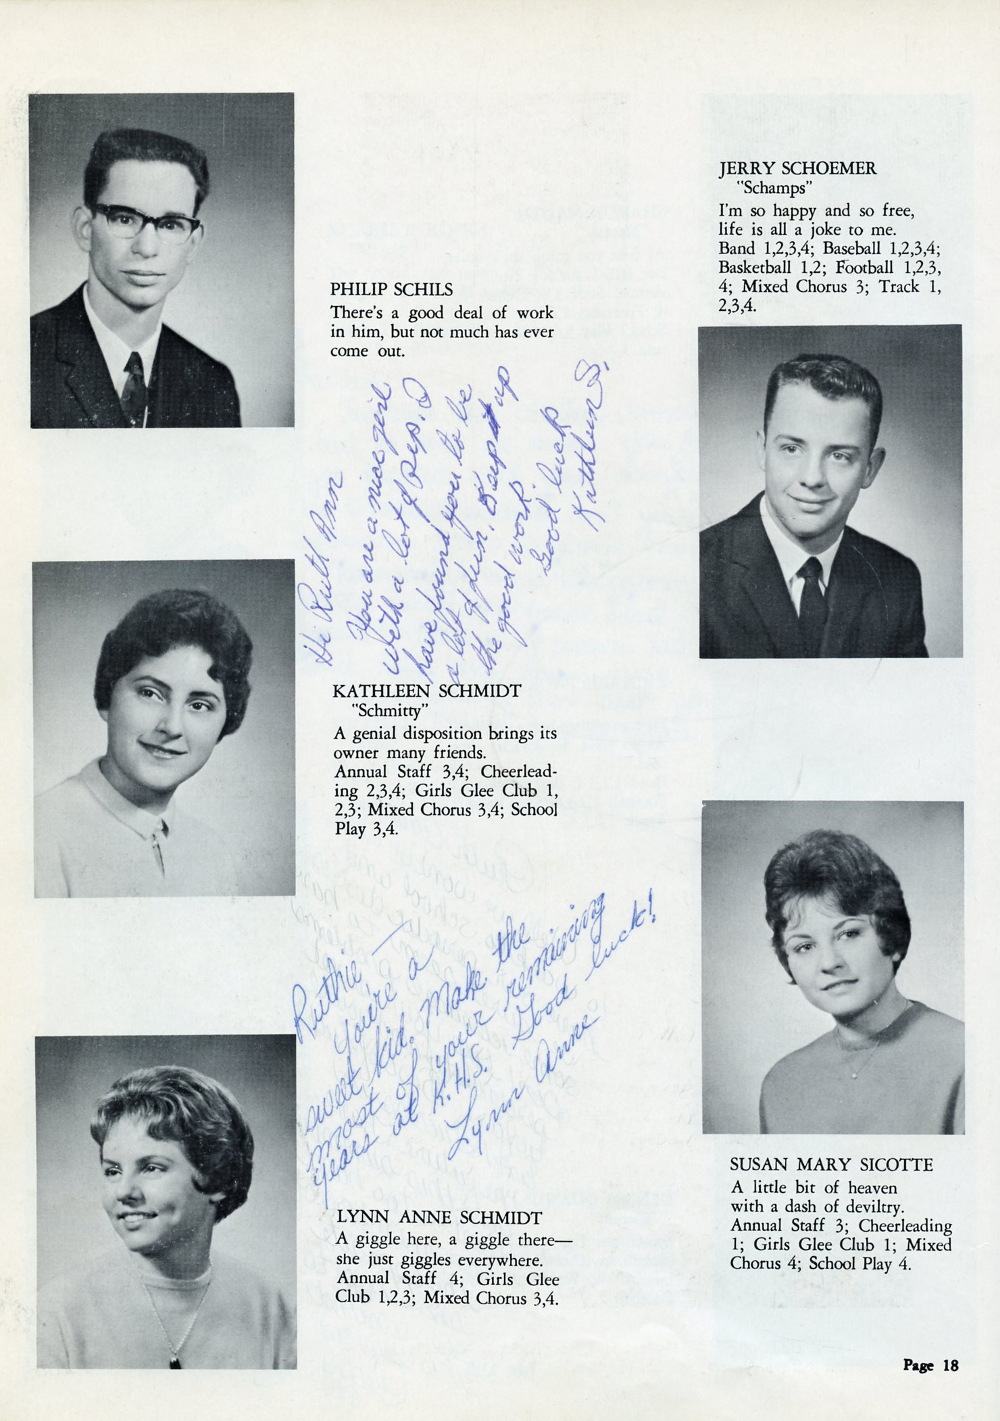 PHILIP SCHILS
There's a good deal of work
in him, but not much has ever
come out.
Hi Ruth Ann
You are a nice girl
with a lot of pep. I
have found you to be
a lot of fun. Keep it up
the good work.
Good luck
Kathleen S.
KATHLEEN SCHMIDT
"Schmitty"
A genial disposition brings its
owner many friends.
Annual Staff 3,4; Cheerlead-
ing 2,3,4; Girls Glee Club 1,
2,3; Mixed Chorus 3,4; School
Play 3,4.
Ruthie —
You're a
sweet kid. Make the
most of your remaining
years at K.H.S. Good luck!
Lynn Anne
LYNN ANNE SCHMIDT
A giggle here, a giggle there—
she just giggles everywhere.
Annual Staff 4; Girls Glee
Club 1,2,3; Mixed Chorus 3,4.
JERRY SCHOEMER
"Schamps"
I'm so happy and so free,
life is all a joke to me.
Band 1,2,3,4; Baseball 1,2,3,4;
Basketball 1,2; Football 1,2,3,
4; Mixed Chorus 3; Track 1,
2,3,4.
SUSAN MARY SICOTTE
A little bit of heaven
with a dash of deviltry.
Annual Staff 3; Cheerleading
1; Girls Glee Club 1; Mixed
Chorus 4; School Play 4.
Page 18